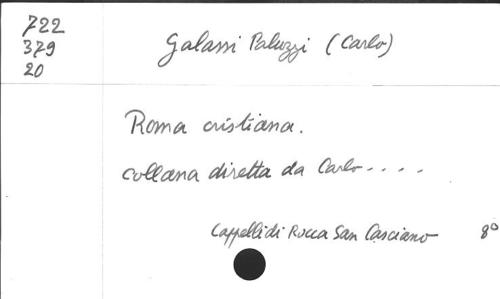 722
379
20
Galassi Paluzzi (Carlo)
Roma cristiana.
collana diretta da Carlo....
Cappelli di Rocca San Casciano 8º